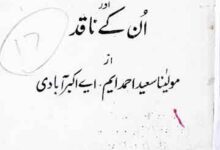 اور
اُن کے ناقد
از
مولیٰنا سعید احمد ایم۔ اے اکبر آبادی